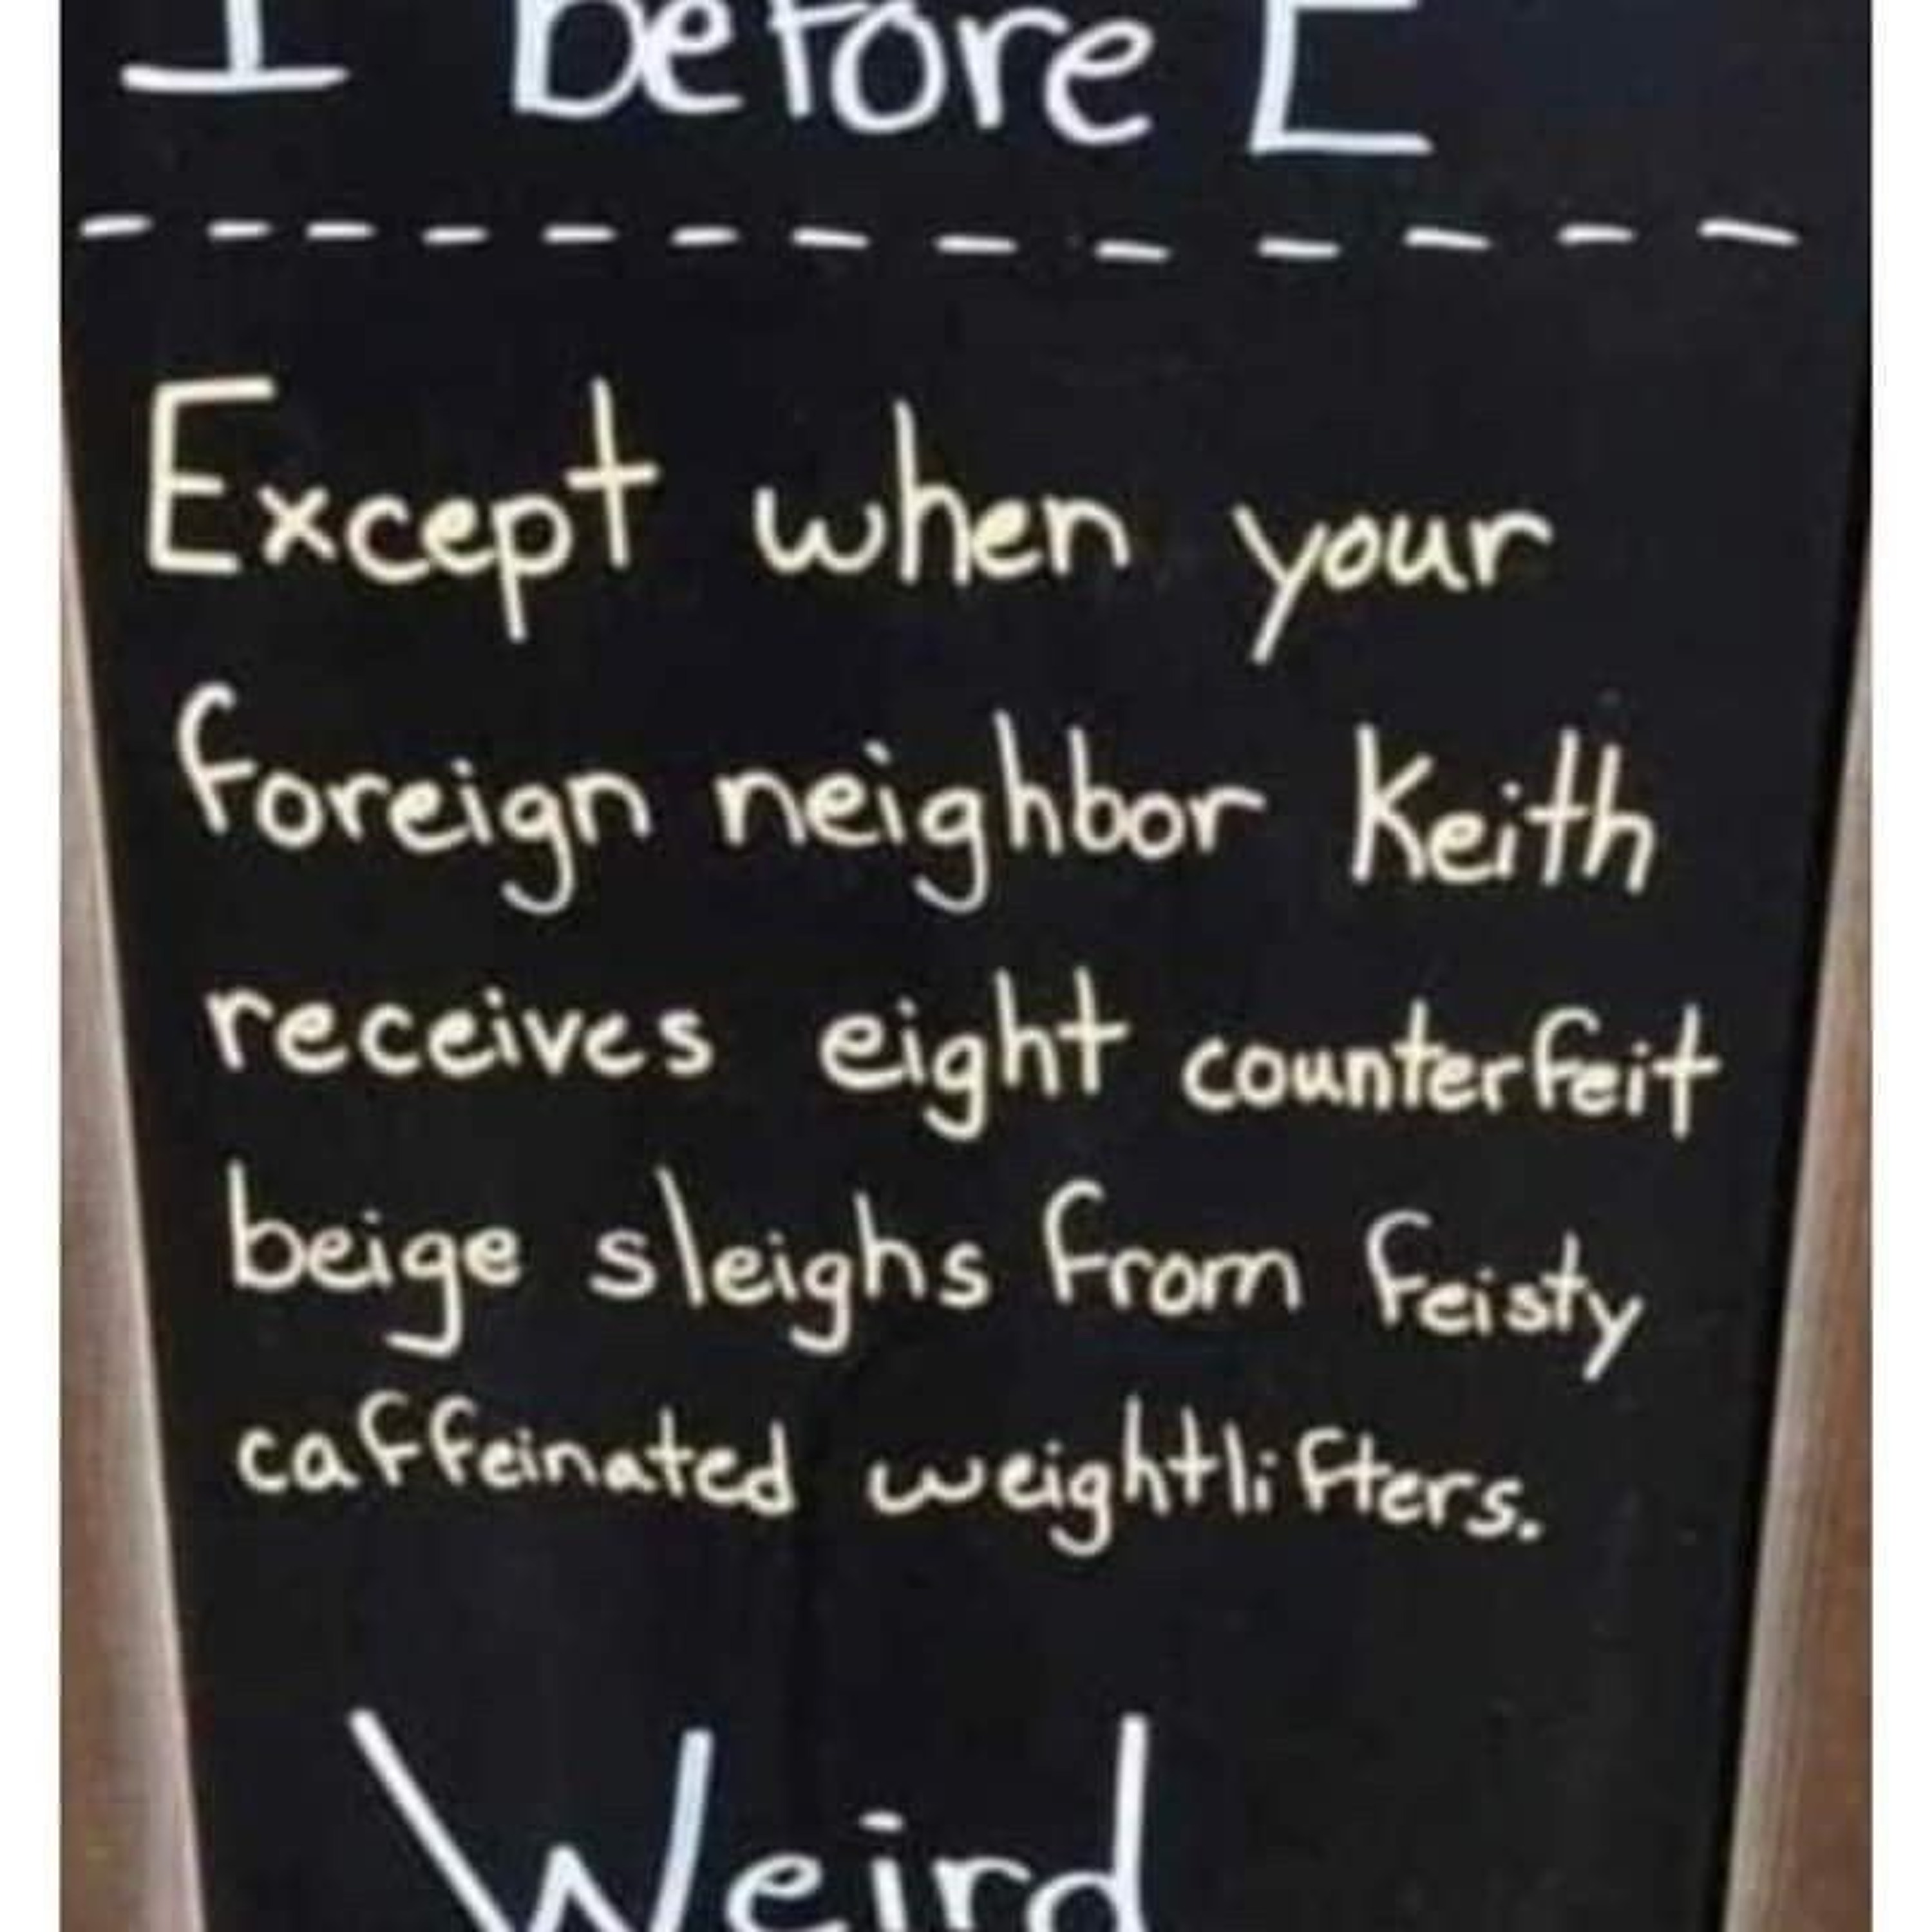 I before E
Except when your
foreign neighbor Keith
receives eight counterfeit
beige sleighs from feisty
caffeinated weightlifters.
Weird